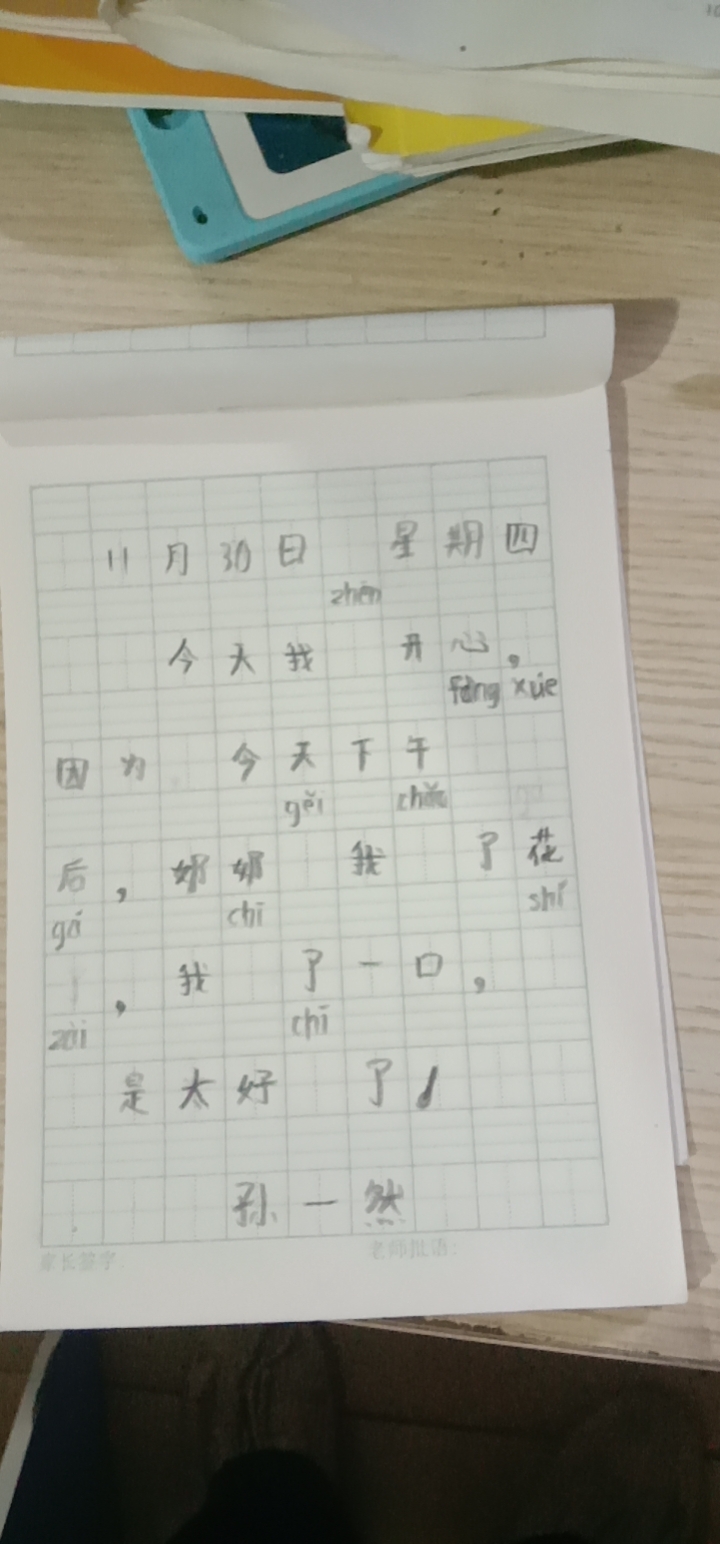 11月30日 星期四
zhēn
今天我 开心，
fàng xué
因为 今天下午
gěi chǎo
后，奶奶 我 了花
gá chī shí
，我 了一口，
zài chī
是太好 了！
孙一然
家长签字：
老师批语：